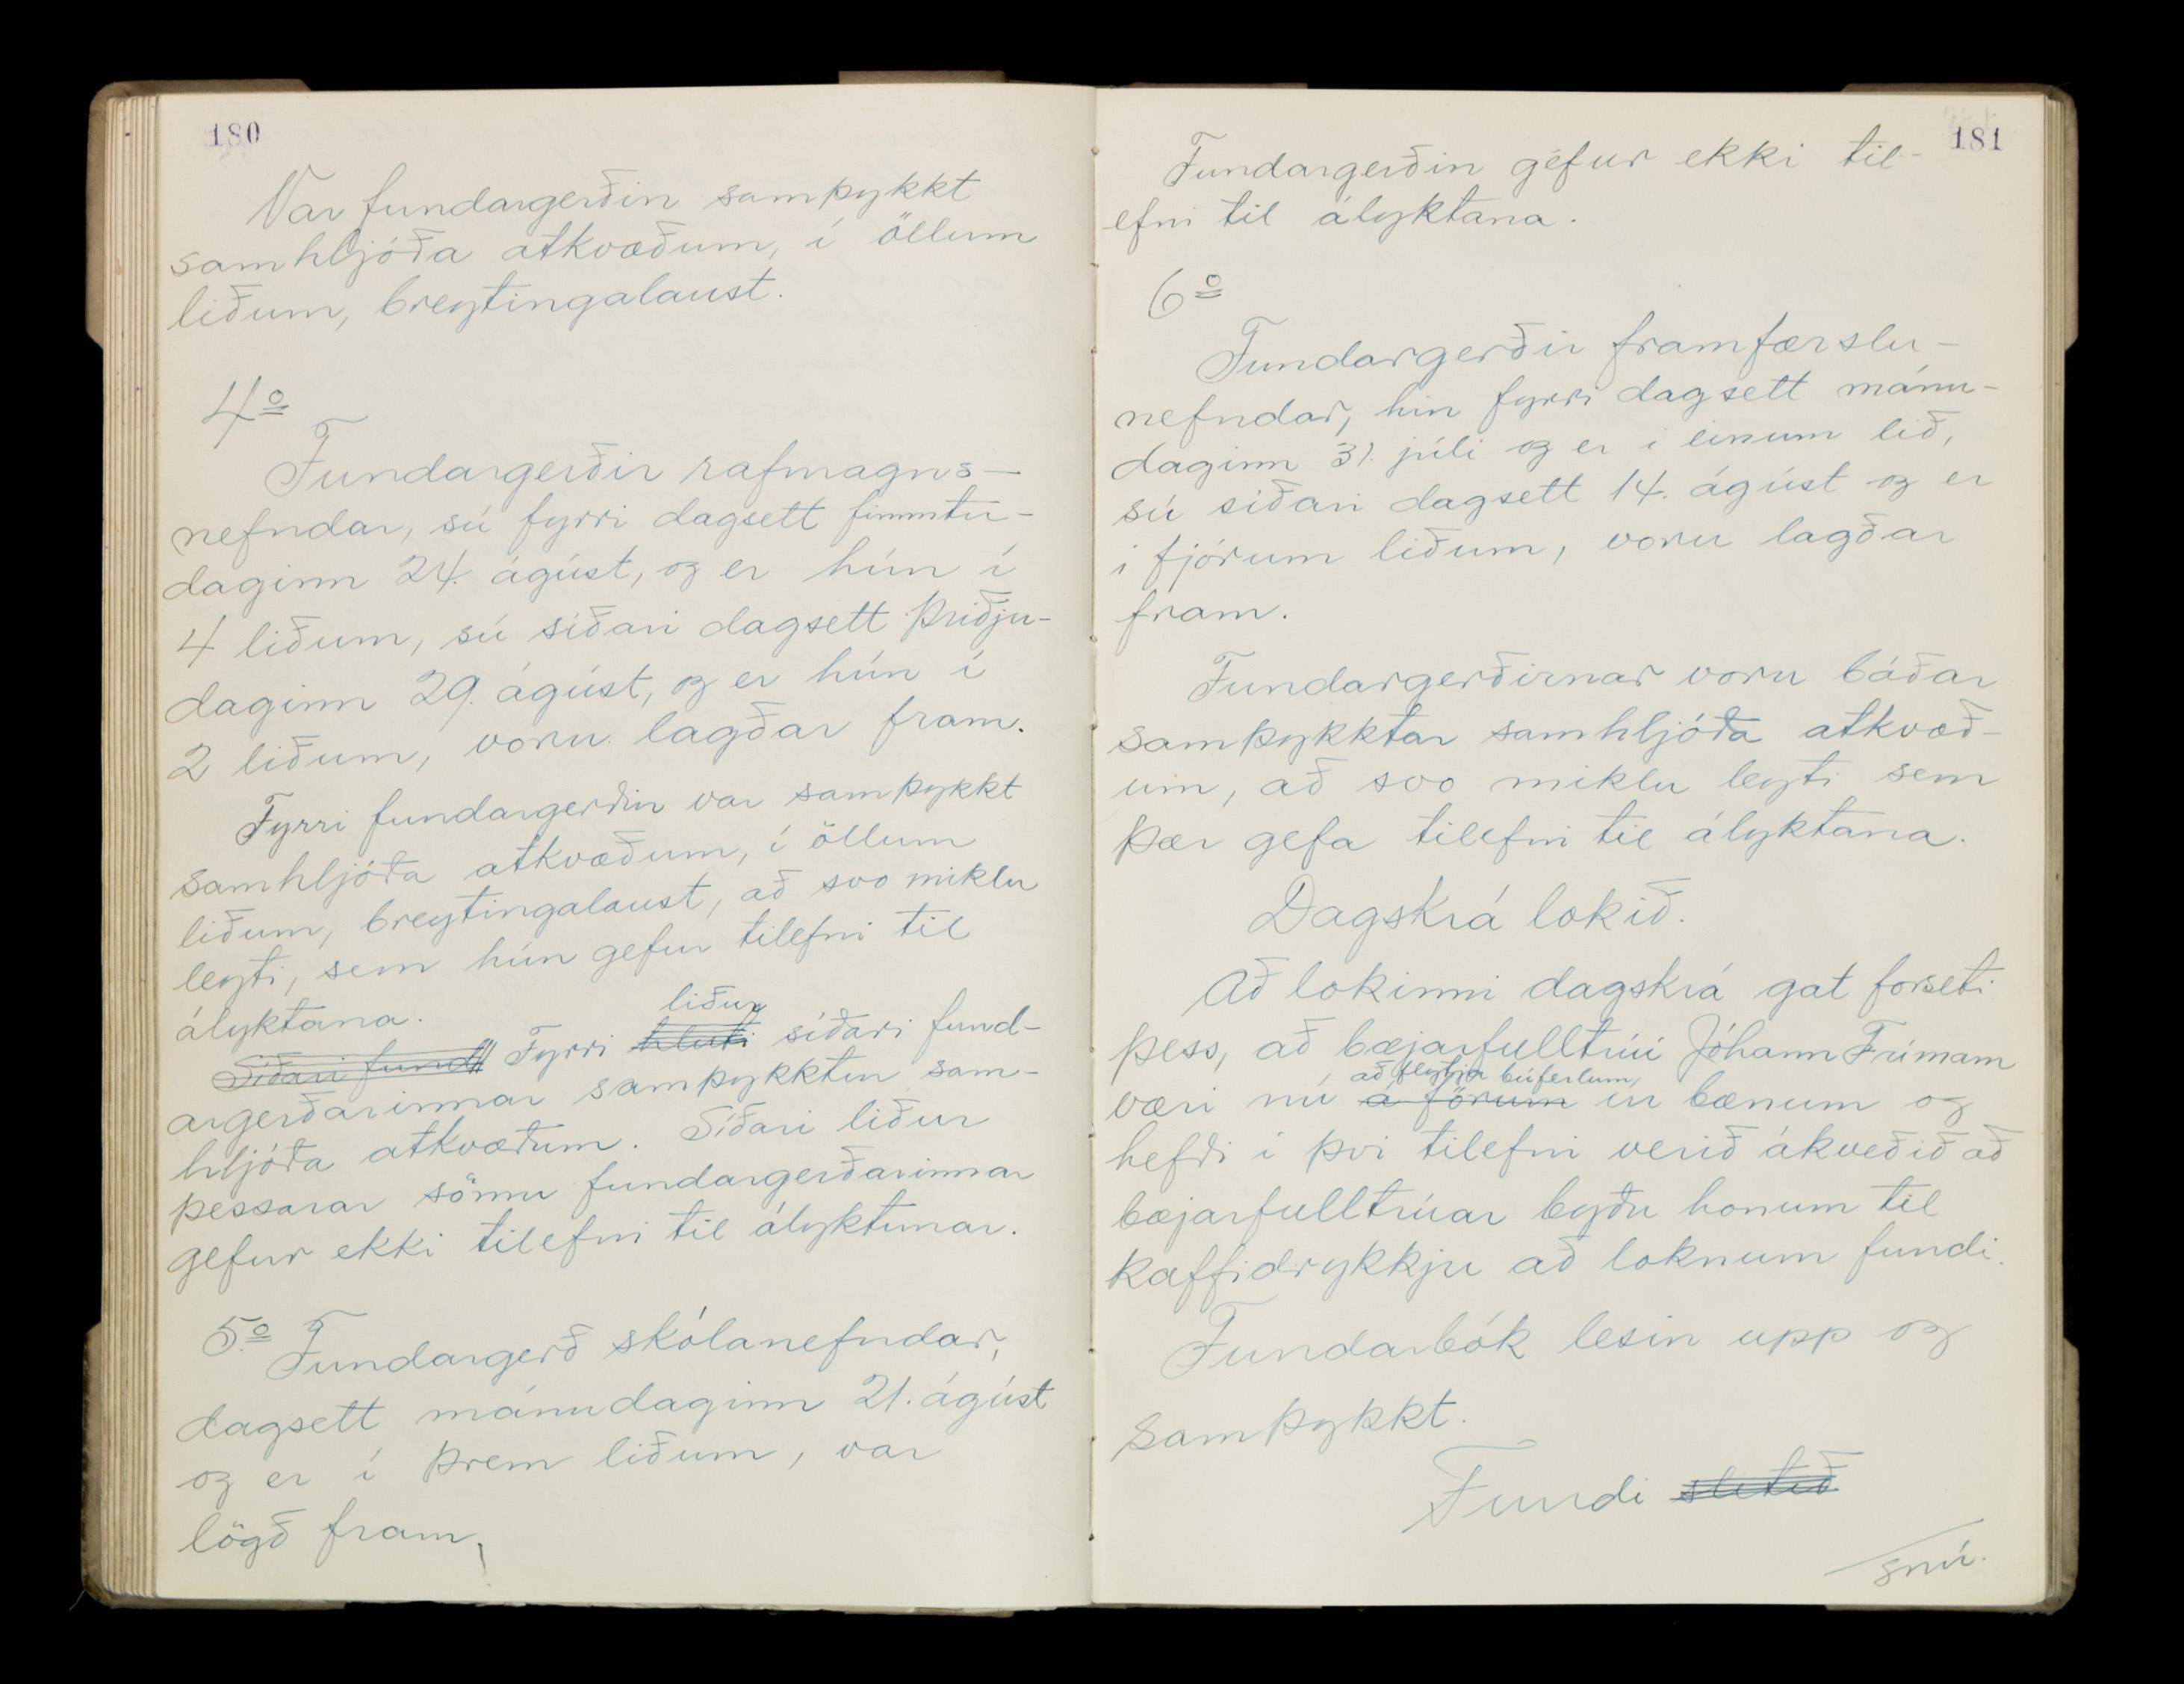 180
Var fundargerðin samþykkt
samhljóða atkvæðum, í öllum
liðum, breytingalaust.
4º
Fundargerðir rafmagns-
nefndar, sú fyrri dagsett fimmtu-
daginn 24. ágúst, og er hún í
4 liðum, sú síðari dagsett þriðju-
daginn 29. ágúst, og er hún í
2 liðum, voru lagðar fram.
Fyrri fundargerðin var samþykkt
samhljóða atkvæðum, í öllum
liðum, breytingalaust, að svo miklu
leyti, sem hún gefur tilefni til
ályktana.
liður
Síðari fund Fyrri hluti síðari fund-
argerðarinnar samþykktur sam-
hljóða atkvæðum. Síðari liður
þessarar sömu fundargerðarinnar
gefur ekki tilefni til ályktunar.
5.º Fundargerð skólanefndar,
dagsett mánudaginn 21. ágúst
og er í þrem liðum, var
lögð fram.
181
Fundargerðin gefur ekki til-
efni til ályktana.
6º
Fundargerðir framfærslu-
nefndar, hin fyrri dagsett mánu-
daginn 31. júlí og er í einum lið,
sú síðari dagsett 14. ágúst og er
í fjórum liðum, voru lagðar
fram.
Fundargerðirnar voru báðar
samþykktar samhljóða atkvæð-
um, að svo miklu leyti sem
þær gefa tilefni til ályktana.
Dagskrá lokið.
Að lokinni dagskrá gat forseti
þess, að bæjarfulltrúi Jóhann Frímann
að flytja búferlum,
væri nú á förum úr bænum og
hefði í því tilefni verið ákveðið að
bæjarfulltrúar byðu honum til
kaffidrykkju að loknum fundi.
Fundarbók lesin upp og
samþykkt.
Fundi slitið
snú.